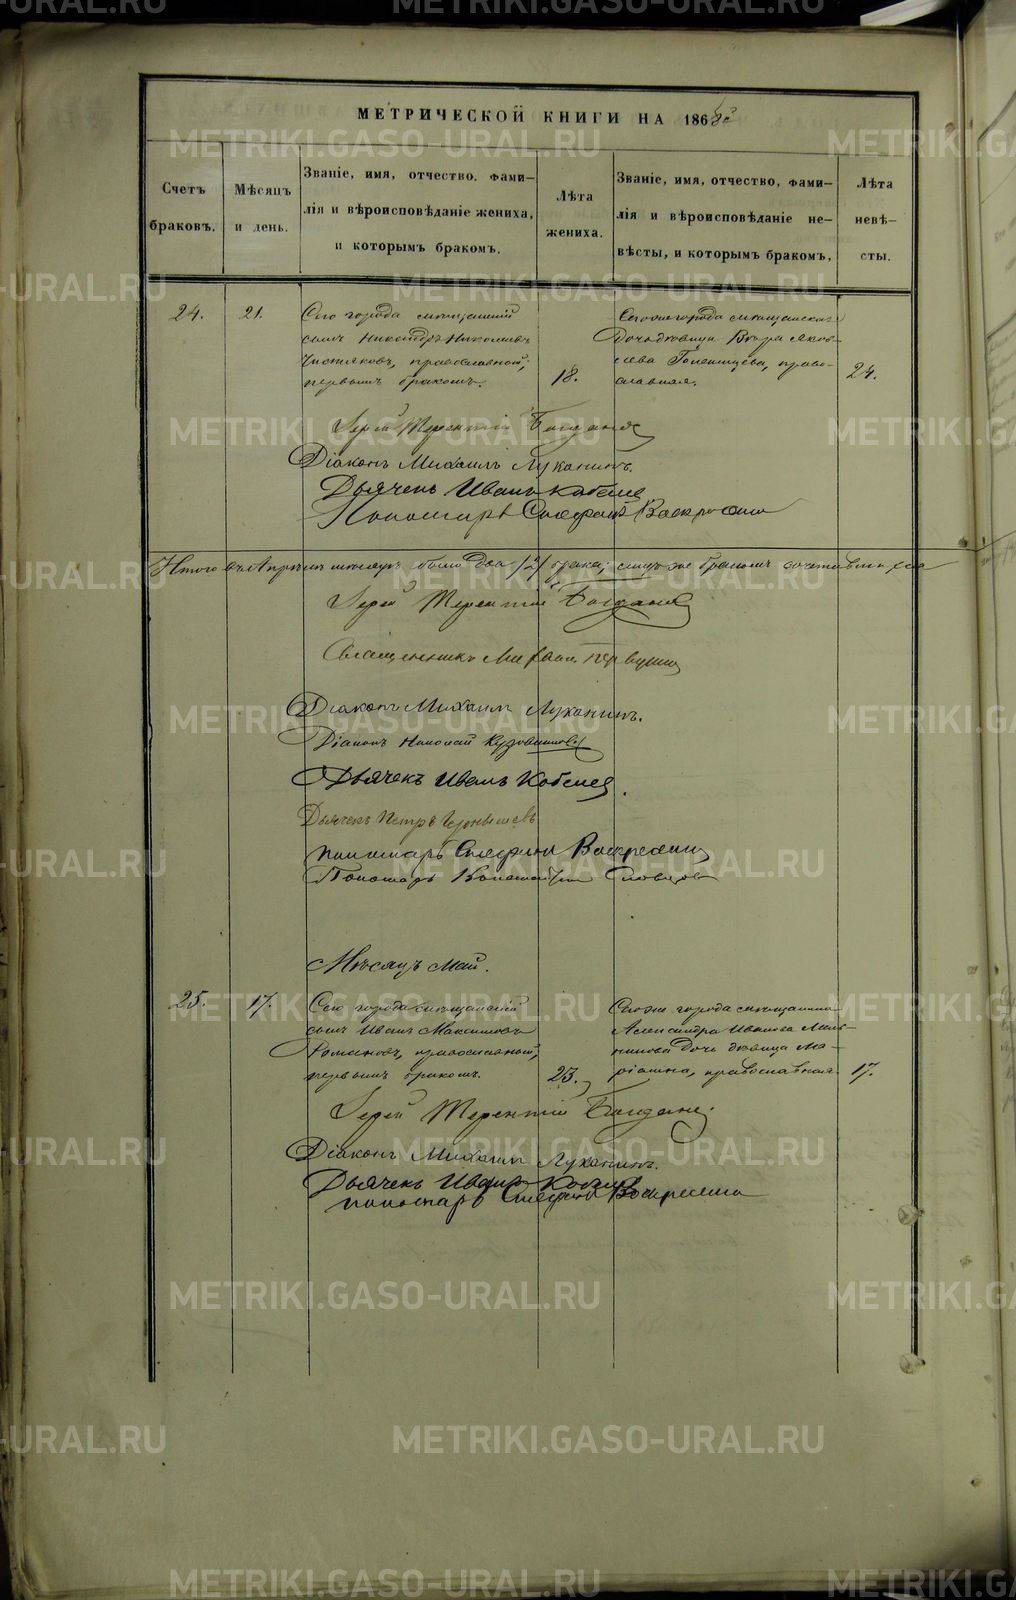 МЕТРИЧЕСКОЙ КНИГИ НА 1868й
Счетъ браковъ.
Мѣсяцъ и день.
Званіе, имя, отчество, фами-
лія и вѣроисповѣданіе жениха,
и которымъ бракомъ.
Лѣта жениха.
Званіе, имя, отчество, фами-
лія и вѣроисповѣданіе не-
вѣсты, и которымъ бракомъ,
Лѣта невѣ-
сты.
24.
21.
Сего города мѣщанскій
сынъ Никандръ Николаевъ
Чистяковъ, православный,
первымъ бракомъ.
18.
города мѣщанская
дочь девица Вѣра Яков-
лева Голенищева, право-
славная.
24.
Іерей Терентій
Діаконъ Михаилъ Луканинъ.
Дьячекъ Иванъ Кобелев
Пономарь Стефанъ Воскресенск
Итого въ Апрѣлѣ мѣсяцѣ было два /2/ брака;
Іерей Терентій
Священникъ Михаил Первушин
Діаконъ Михаилъ Луканинъ.
Діаконъ Николай Кузовниковъ
Дьячекъ Иванъ Кобелев.
Дьячекъ Петръ Чернышевъ
Пономарь Стефанъ Воскресенск
Пономарь Словцовъ
Мѣсяцъ Май.
25.
17.
Сего города мѣщанскій
сынъ Иванъ Максимовъ
Романовъ, православный,
первымъ бракомъ.
23.
города мѣщанина
Александра Иванова Мель-
никова дочь девица Ма-
ріамна, православная
17.
Іерей Терентій
Діаконъ Михаилъ Луканинъ.
Дьячекъ Иванъ Кобелев
пономарь Стефанъ Воскресенск
METRIKI.GASO-URAL.RU